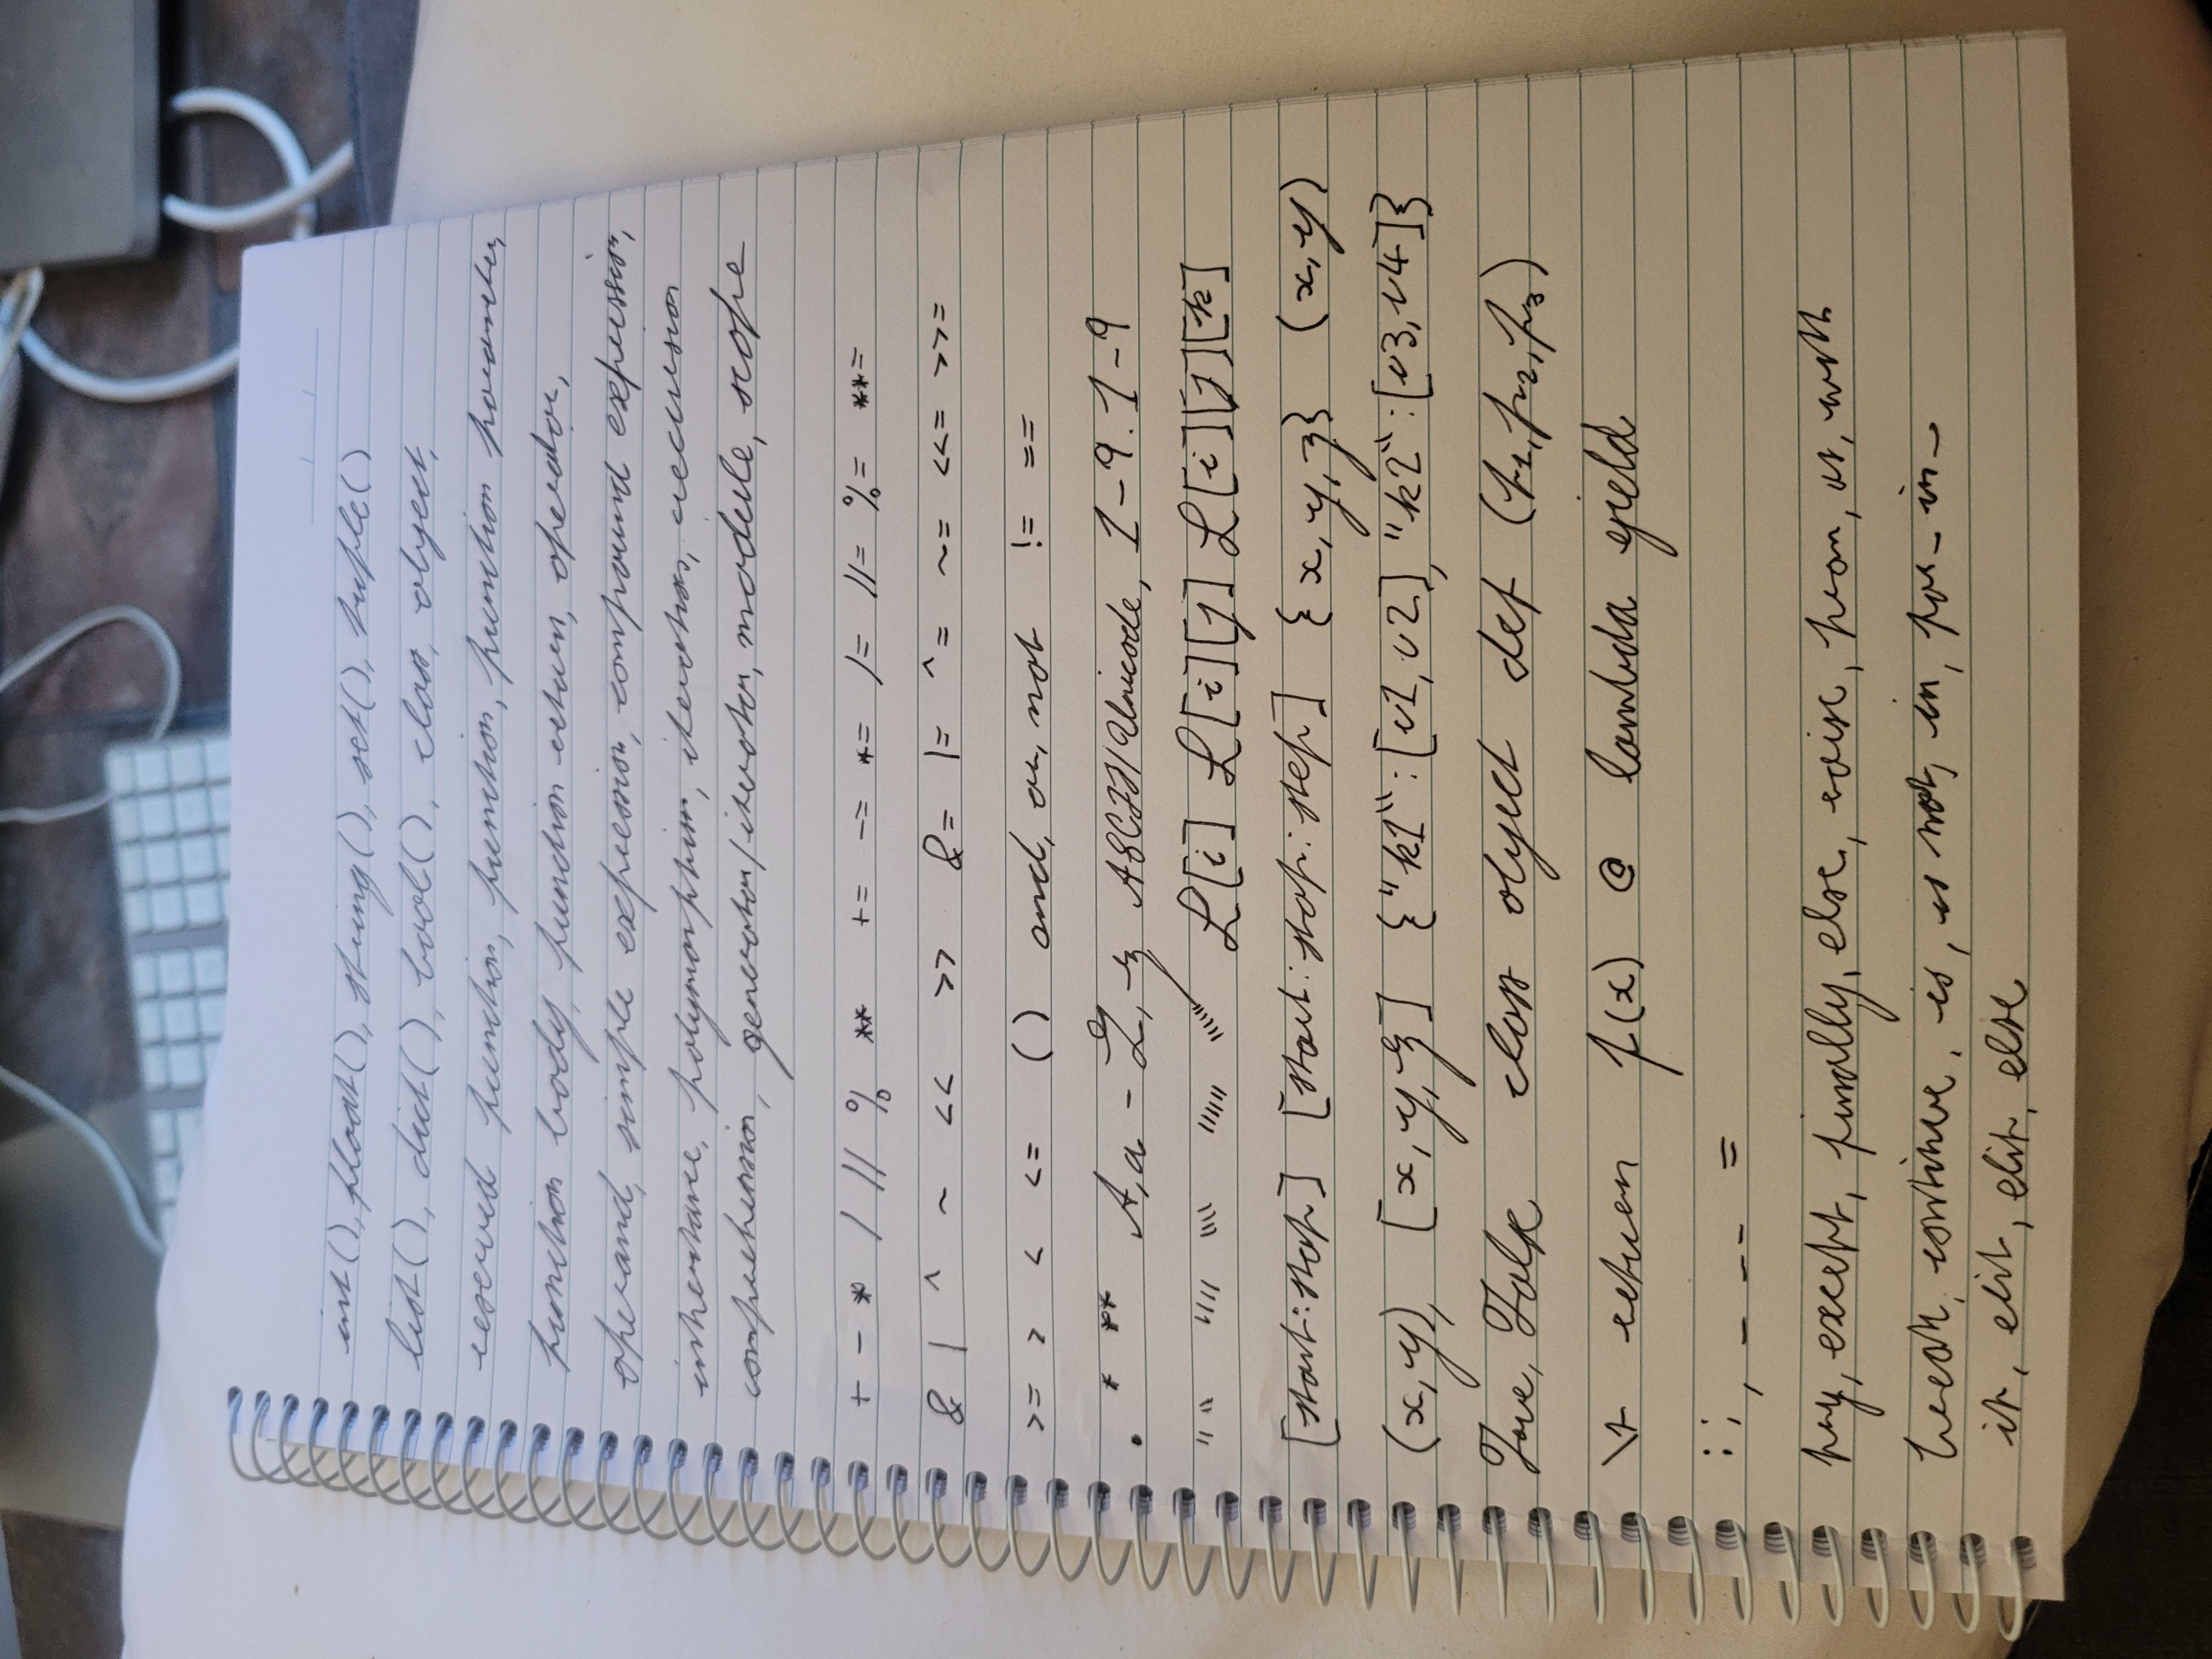 int(), float(), string(), set(), tuple()
list(), dict(), bool(), class, object,
reserved function, function, function parameter,
function body, function return, operator,
operand, simple expression, compound expression,
inheritance, polymorphism, iteration, recursion
comprehension, generator/iterator, module, scope
+ - * / // % ** += -= *= /= //= %= **=
& | ^ ~ << >> &= |= ^= ~= <<= >>=
>= > < <= () and, or, not != ==
. * ** A,a - Z,z ASCII/Unicode, 1-9.1-9
L[i] L[i][j] L[i][j][k]
[start:stop] [start:stop:step] {x,y,z} (x,y)
(x,y), [x,y,z] {"k1":[v1,v2],"k2":[v3,v4]}
True, False class object def (p1,p2,p3)
\t return f(x) @ lambda yield
: ; , _ __ =
try, except, finally, else, raise, from, as, with
break, continue, is, is not, in, for_in_
if, elif, elif, else